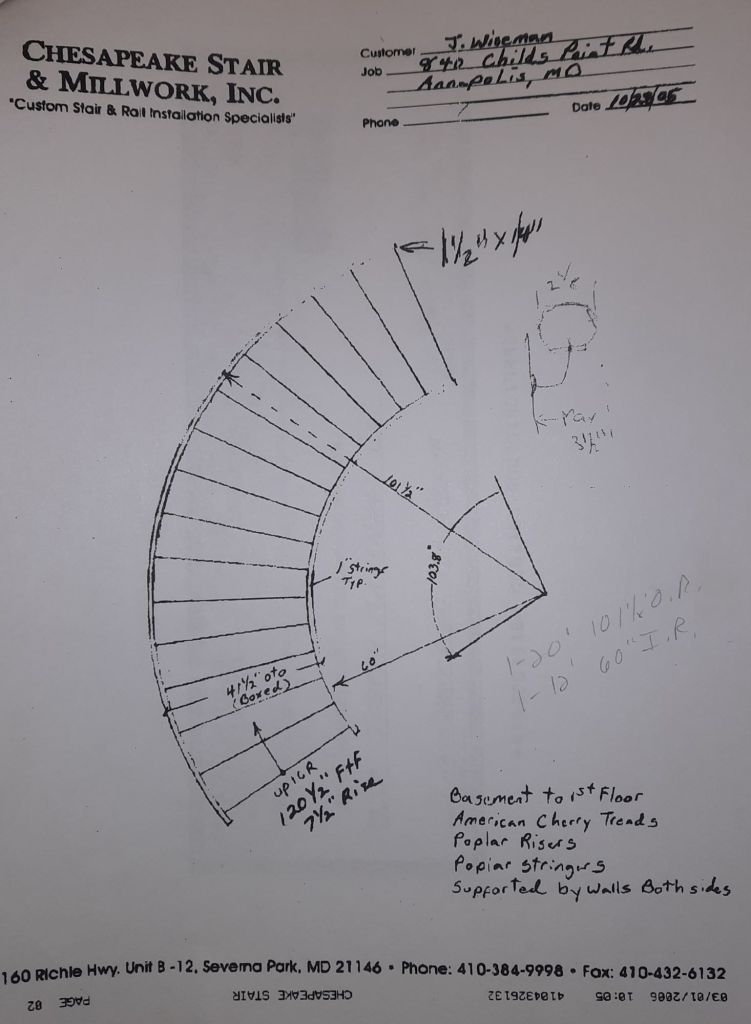 CHESAPEAKE STAIR
& MILLWORK, INC.
"Custom Stair & Rail Installation Specialists"
Customer J. Wiseman
Job 840 Childs Point Rd.
Annapolis, MD
Phone
Date 10/23/05
1 1/2" x 14"
2 1/8
Max
3 1/2"
101 1/2"
103.8°
1" Strings
Typ.
60"
41 1/2" oto
(Boxed)
UP 16R
120 1/2" F+F
7 1/2" Rise
1-20' 101 1/2" O.R.
1-12' 60" I.R.
Basement to 1st Floor
American Cherry Treads
Poplar Risers
Poplar Stringers
Supported by Walls Both sides
160 Richie Hwy. Unit B-12, Severna Park, MD 21146 • Phone: 410-384-9998 • Fax: 410-432-6132
03/01/2006 10:05 4104326132 CHESAPEAKE STAIR PAGE 02